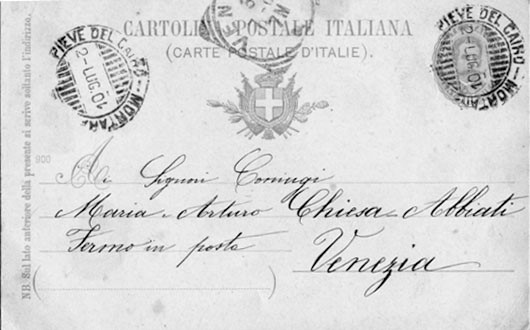 CARTOLINA POSTALE ITALIANA
(CARTE POSTALE D'ITALIE)
PIEVE DEL CAIRO - MORTARA
PIEVE DEL CAIRO - MORTARA
NB. Sul lato anteriore della presente si scrive soltanto l'indirizzo.
900
Ai Signori Coniugi
Maria - Arturo Chiesa Abbiati
Fermo in posta
Venezia